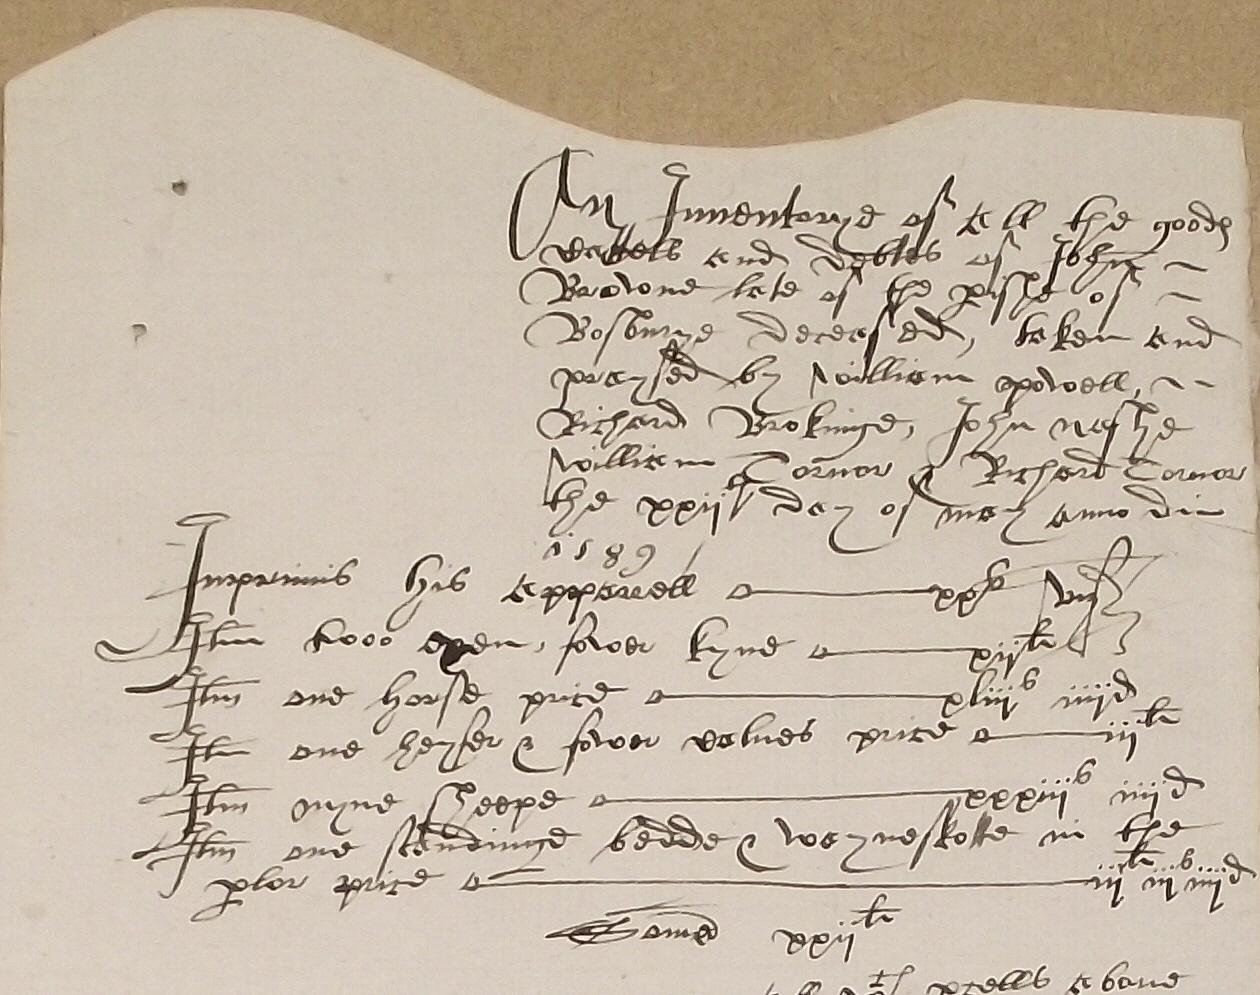 An Inventorye of all the goodes
cattells and debtes of John
Browne late of the pishe of
Bosburye deceassed, taken and
praysed by william powell,
Richard Brokinge, John nashe
william Tornor & Richard Tornor
the xxijth day of may anno dni
1589
Inprimis his apparrell xxs
Itm twoo oxen, fower kyne xijli
Itm one horse price xliijs iiijd
Itm one heyfer & fower calues price iijli
Itm nyne sheepe xxxiijs iiijd
Itm one standinge bedde & waynskotte in the
plor price iijli iijs iiijd
Somma xxijli
all pcells aboue